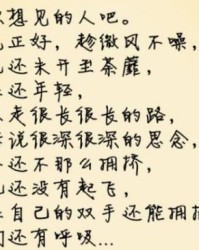 想见的人吧。
正好,趁微风不噪,
还未开至荼蘼,
还年轻,
走很长很长的路,
说很深很深的思念,
还不那么拥挤,
还没有起飞,
自己的双手还能拥
还有呼吸…